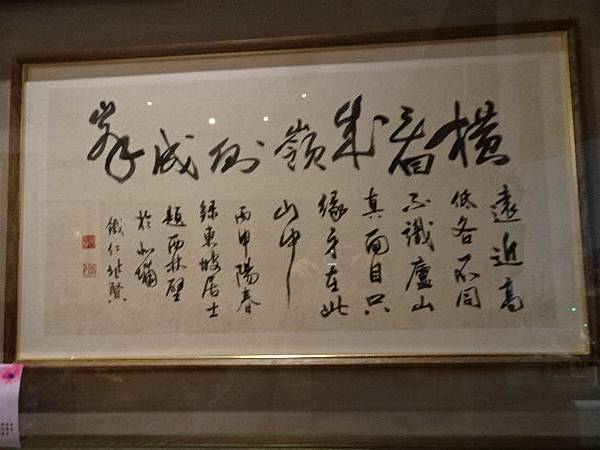 橫看成嶺側成峯
遠近高
低各不同
不識廬山
真面目只
緣身在此
山中
丙申陽春
錄東坡居士
題西林壁
於
鐵仁